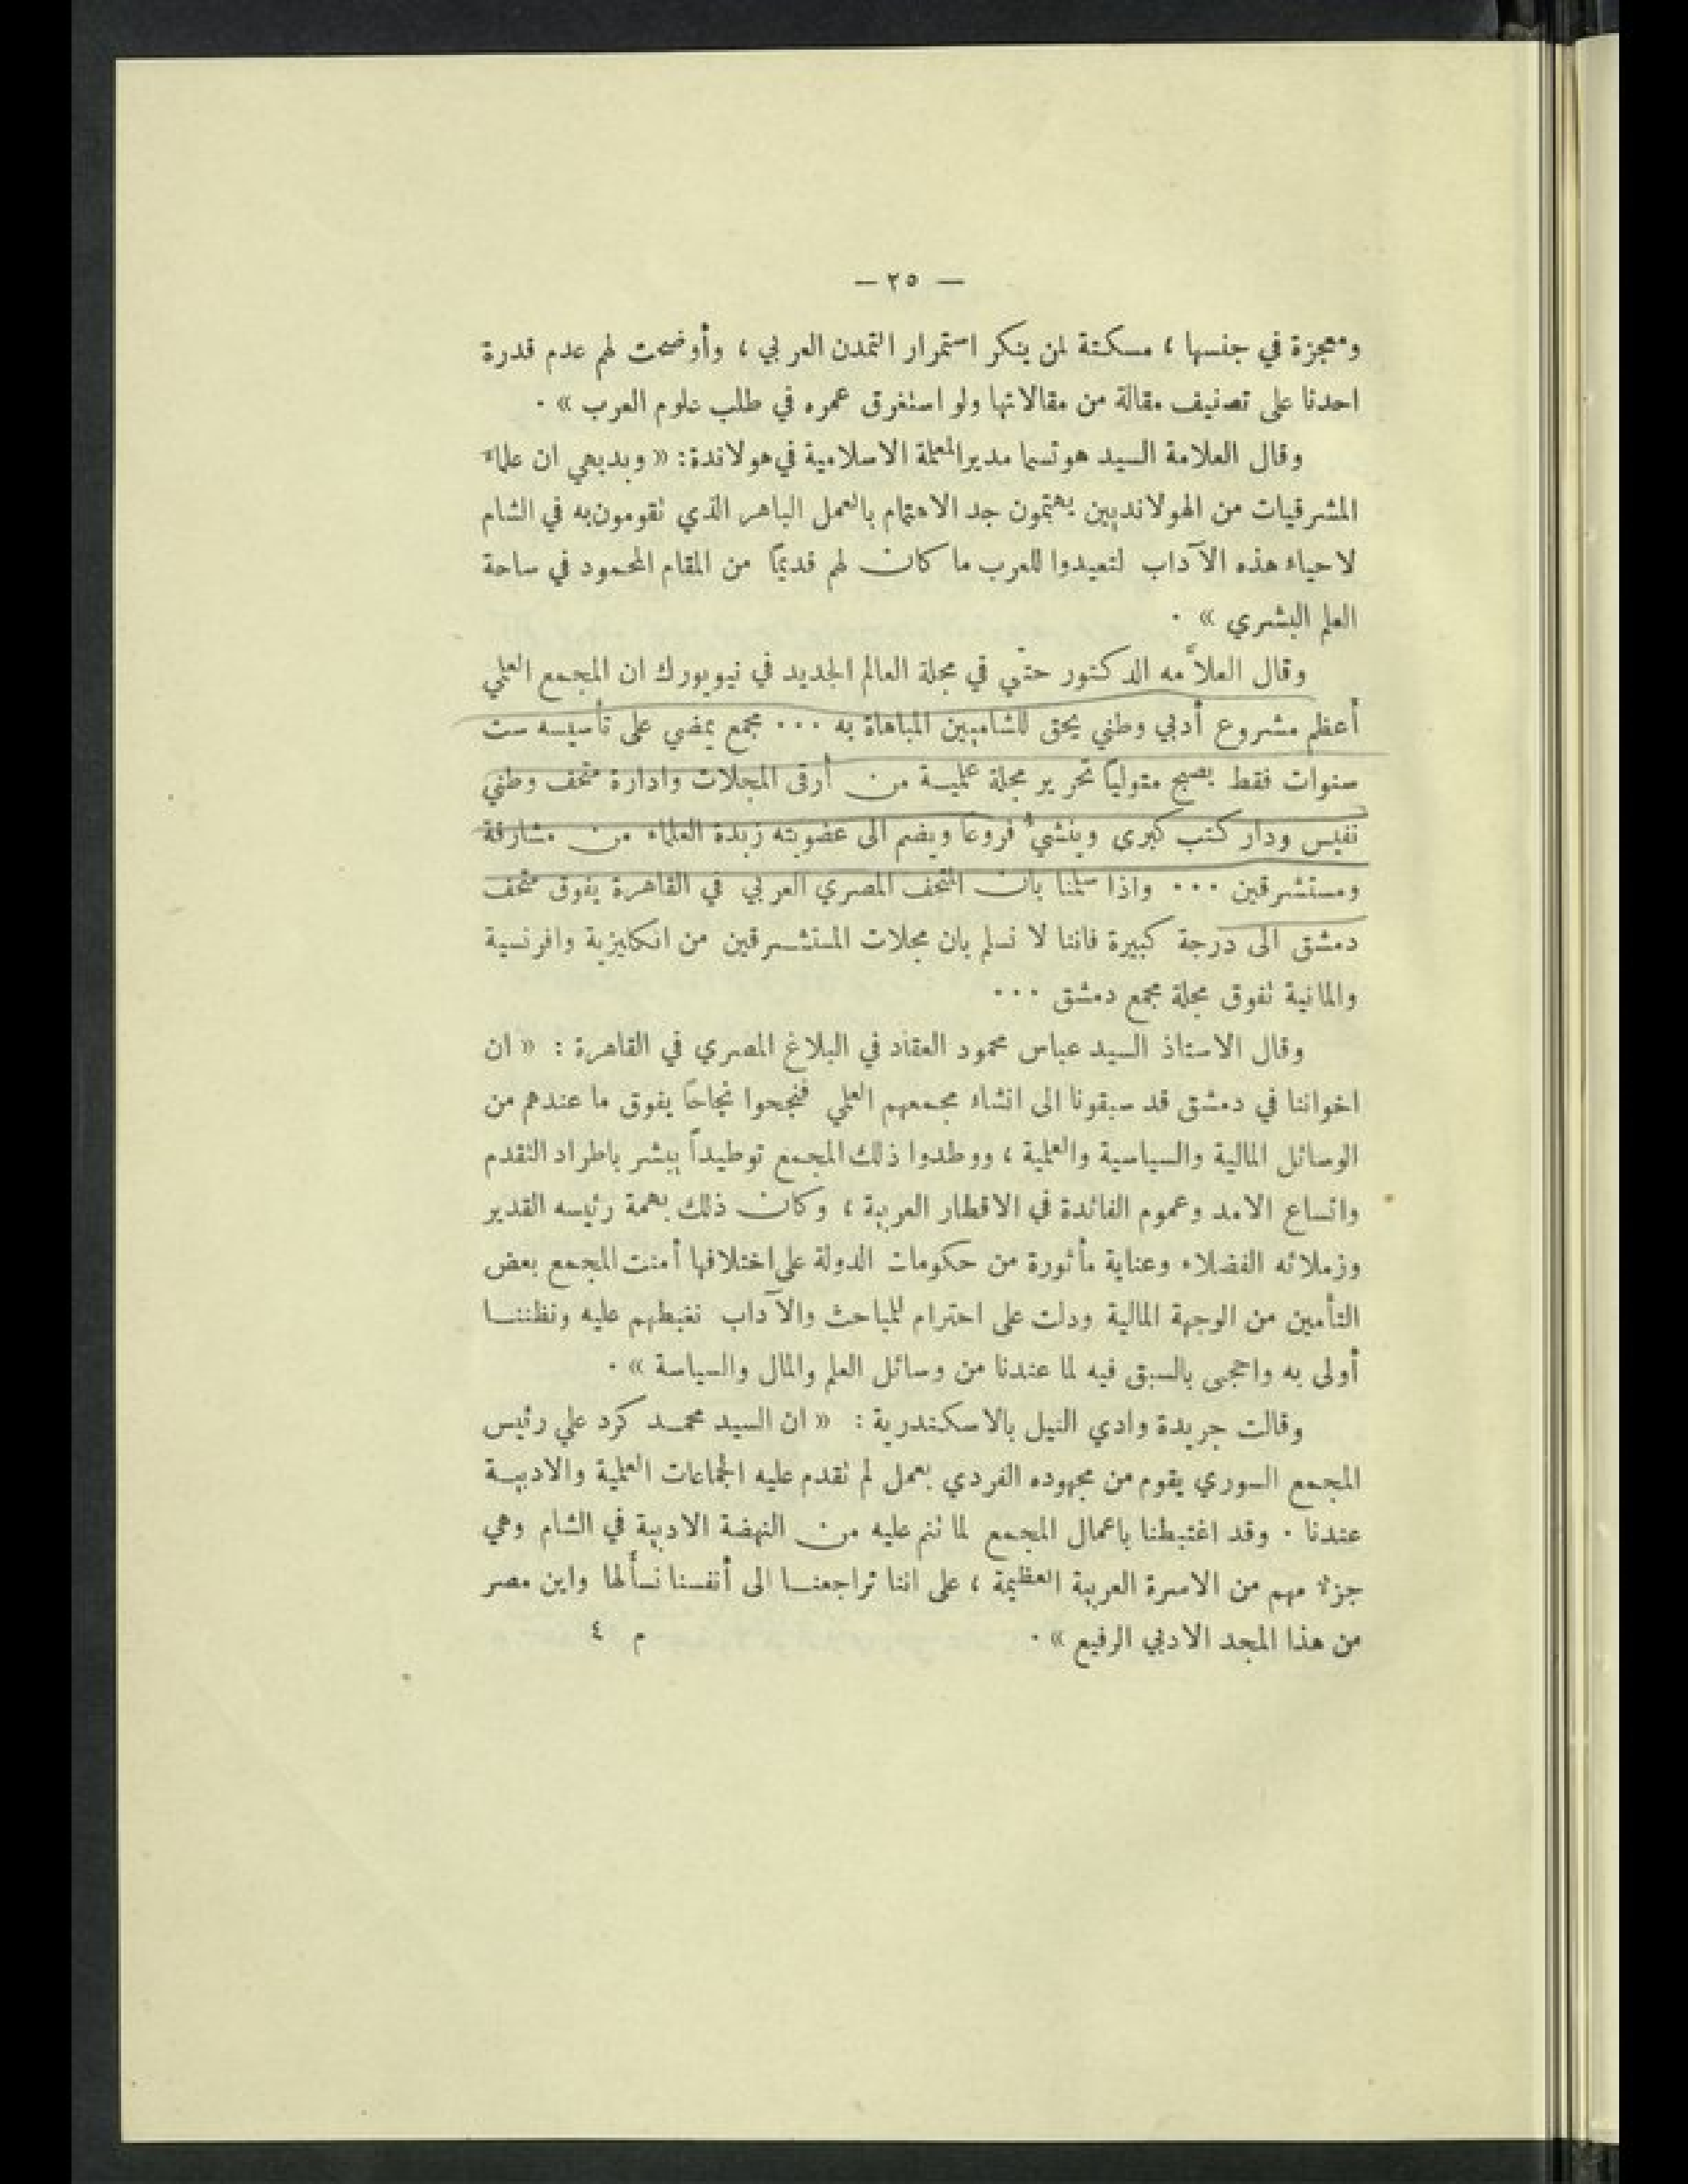 — ٢٥ —
ومعجزة في جنسها ، مسكتة لمن ينكر استمرار التمدن العربي ، وأوضحت لهم عدم قدرة
احدنا على تصنيف مقالة من مقالاتها ولو استغرق عمره في طلب علوم العرب » .
وقال العلامة السيد هوتسما مدير المعلمة الاسلامية في هولاندة : « وبديهي ان علماء
المشرقيات من الهولانديين يهتمون جد الاهتمام بالعمل الباهر الذي تقومون به في الشام
لاحياء هذه الآداب لتعيدوا للعرب ما كان لهم قديمًا من المقام المحمود في ساحة
العلم البشري » .
وقال العلاَّمه الدكتور حتّي في مجلة العالم الجديد في نيويورك ان المجمع العلمي
أعظم مشروع أدبي وطني يحق للشاميين المباهاة به ... مجمع يمضي على تأسيسه ست
سنوات فقط يصبح متوليًا تحرير مجلة علمية من أرقى المجلات وادارة متحف وطني
نفيس ودار كتب كبرى وينشئ فروعًا ويضم الى عضويته زبدة العلماء من مشارقة
ومستشرقين ... واذا سلمنا بان المتحف المصري العربي في القاهرة يفوق متحف
دمشق الى درجة كبيرة فاننا لا نسلم بان مجلات المستشرقين من انكليزية وافرنسية
والمانية تفوق مجلة مجمع دمشق ...
وقال الاستاذ السيد عباس محمود العقاد في البلاغ المصري في القاهرة : « ان
اخواننا في دمشق قد سبقونا الى انشاء مجمعهم العلمي فنجحوا نجاحًا يفوق ما عندهم من
الوسائل المالية والسياسية والعلمية ، ووطدوا ذلك المجمع توطيداً يبشر باطراد التقدم
واتساع الامد وعموم الفائدة في الاقطار العربية ، وكان ذلك بهمة رئيسه القدير
وزملائه الفضلاء وعناية مأثورة من حكومات الدولة على اختلافها أمنت المجمع بعض
التأمين من الوجهة المالية ودلت على احترام للمباحث والآداب نغبطهم عليه ونظننا
أولى به واحجى بالسبق فيه لما عندنا من وسائل العلم والمال والسياسة » .
وقالت جريدة وادي النيل بالاسكندرية : « ان السيد محمد كرد علي رئيس
المجمع السوري يقوم من مجهوده الفردي بعمل لم تقدم عليه الجماعات العلمية والادبية
عندنا . وقد اغتبطنا باعمال المجمع لما تنم عليه من النهضة الادبية في الشام وهي
جزء مهم من الاسرة العربية العظيمة ، على اننا تراجعنا الى أنفسنا نسألها واين مصر
من هذا المجد الادبي الرفيع » . م ٤